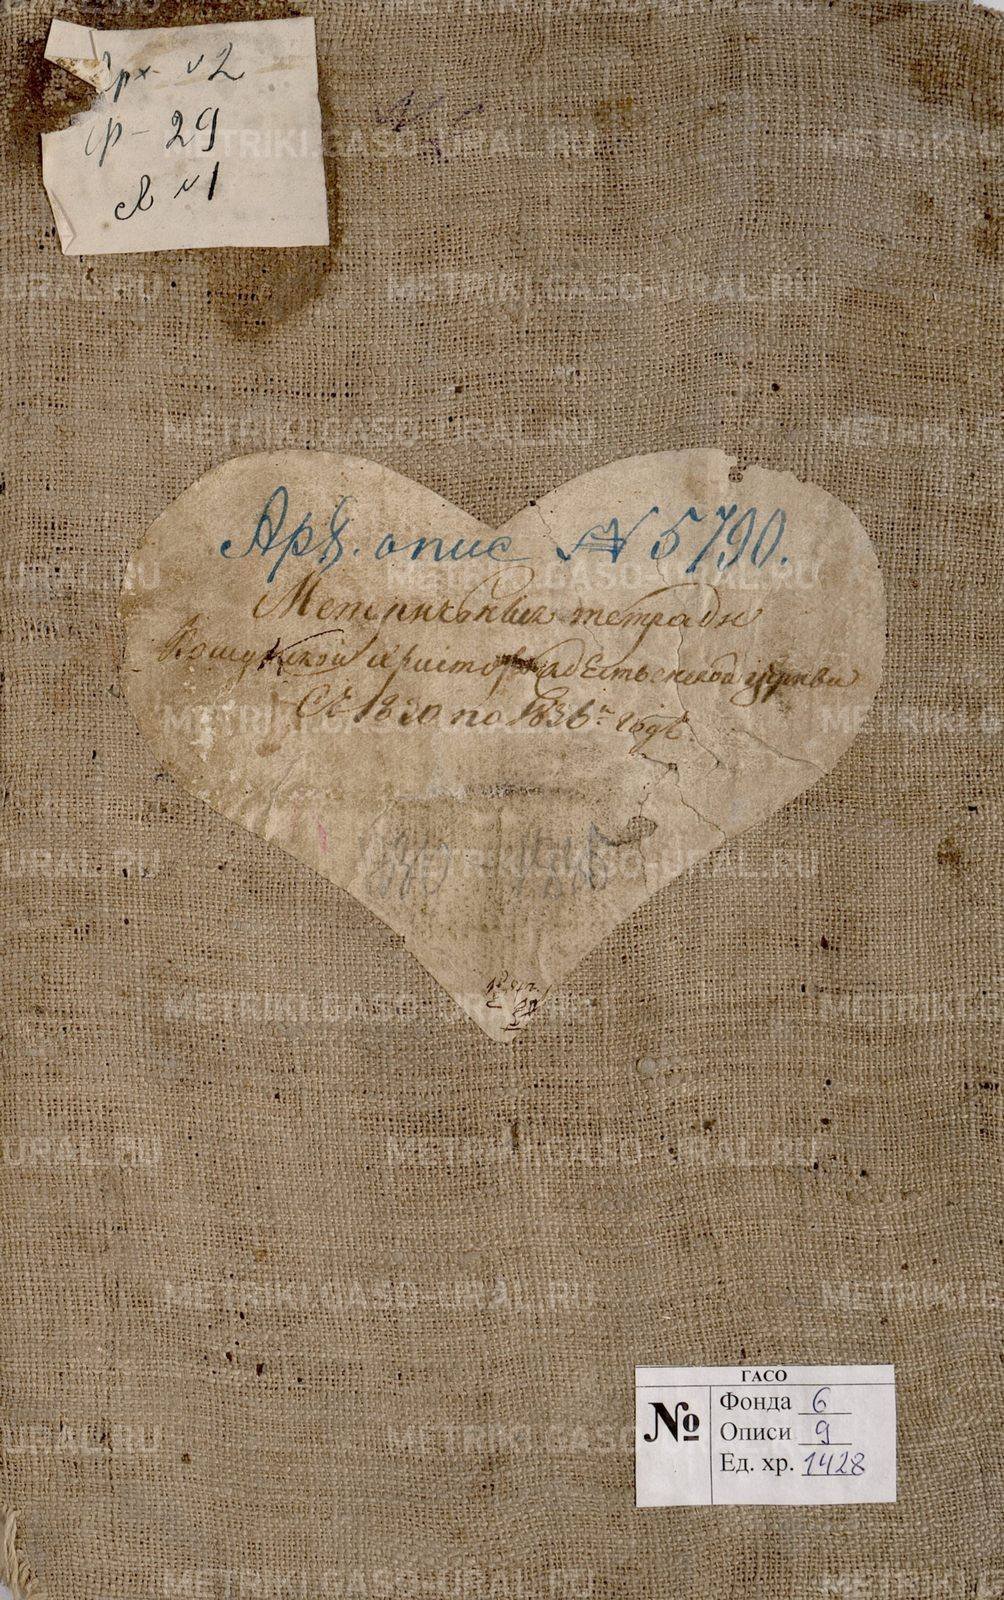 Арх. №2
Ф - 29
св №1
Арх. опис № 5790.
Метрическия тетради
Кошукской христорождественской церкви
Съ 1830 по 1836й годъ.
ГАСО
№
Фонда 6
Описи 9
Ед. хр. 1428
METRIKI.GASO-URAL.RU